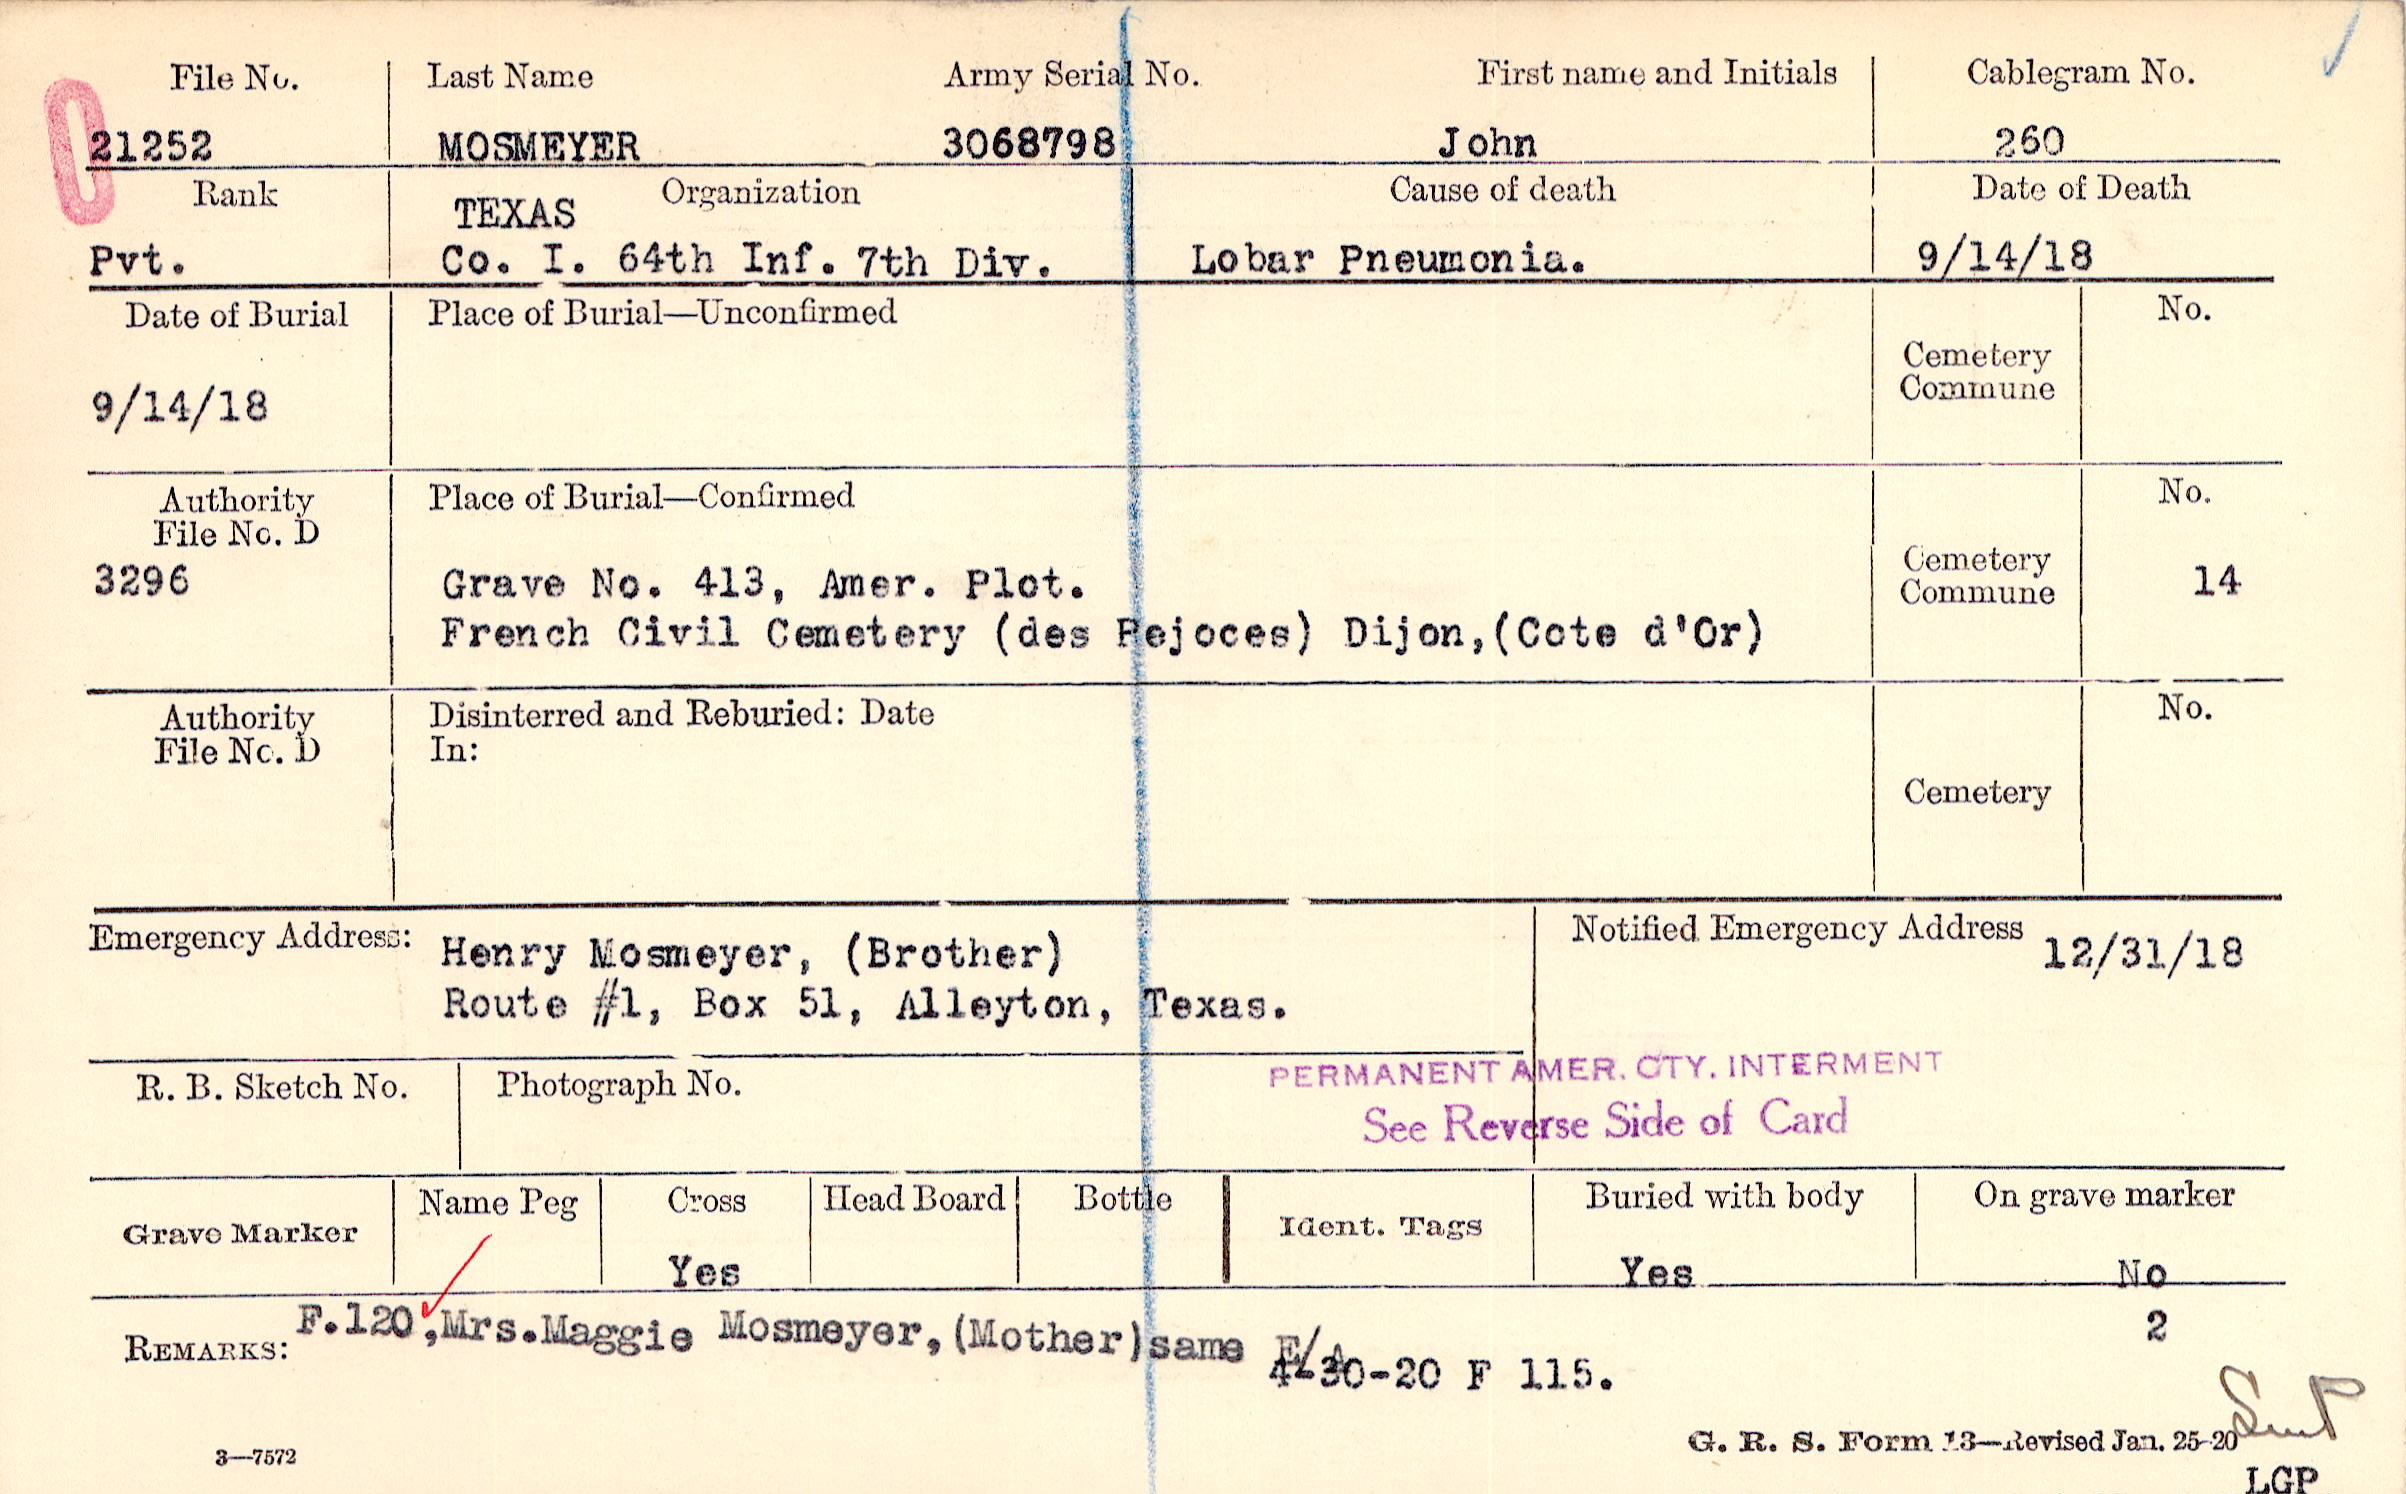 File No. Last Name Army Serial No. First name and Initials Cablegram No.
21252 MOSMEYER 3068798 John 260
Rank Organization Cause of death Date of Death
TEXAS
Pvt. Co. I. 64th Inf. 7th Div. Lobar Pneumonia. 9/14/18
Date of Burial Place of Burial—Unconfirmed No.
Cemetery
Commune
9/14/18
Authority Place of Burial—Confirmed No.
File No. D
Cemetery
3296 Grave No. 413, Amer. Plot. Commune 14
French Civil Cemetery (des Pejoces) Dijon,(Cote d'Or)
Authority Disinterred and Reburied: Date No.
File No. D In:
Cemetery
Emergency Address: Henry Mosmeyer, (Brother) Notified Emergency Address 12/31/18
Route #1, Box 51, Alleyton, Texas.
R. B. Sketch No. Photograph No. PERMANENT AMER. CTY. INTERMENT
See Reverse Side of Card
Grave Marker Name Peg Cross Head Board Bottle Ident. Tags Buried with body On grave marker
Yes Yes No
REMARKS: F.120,Mrs.Maggie Mosmeyer,(Mother)same E/A 2
4-30-20 F 115.
3—7572 G. R. S. Form 13—Revised Jan. 25-20
LGP